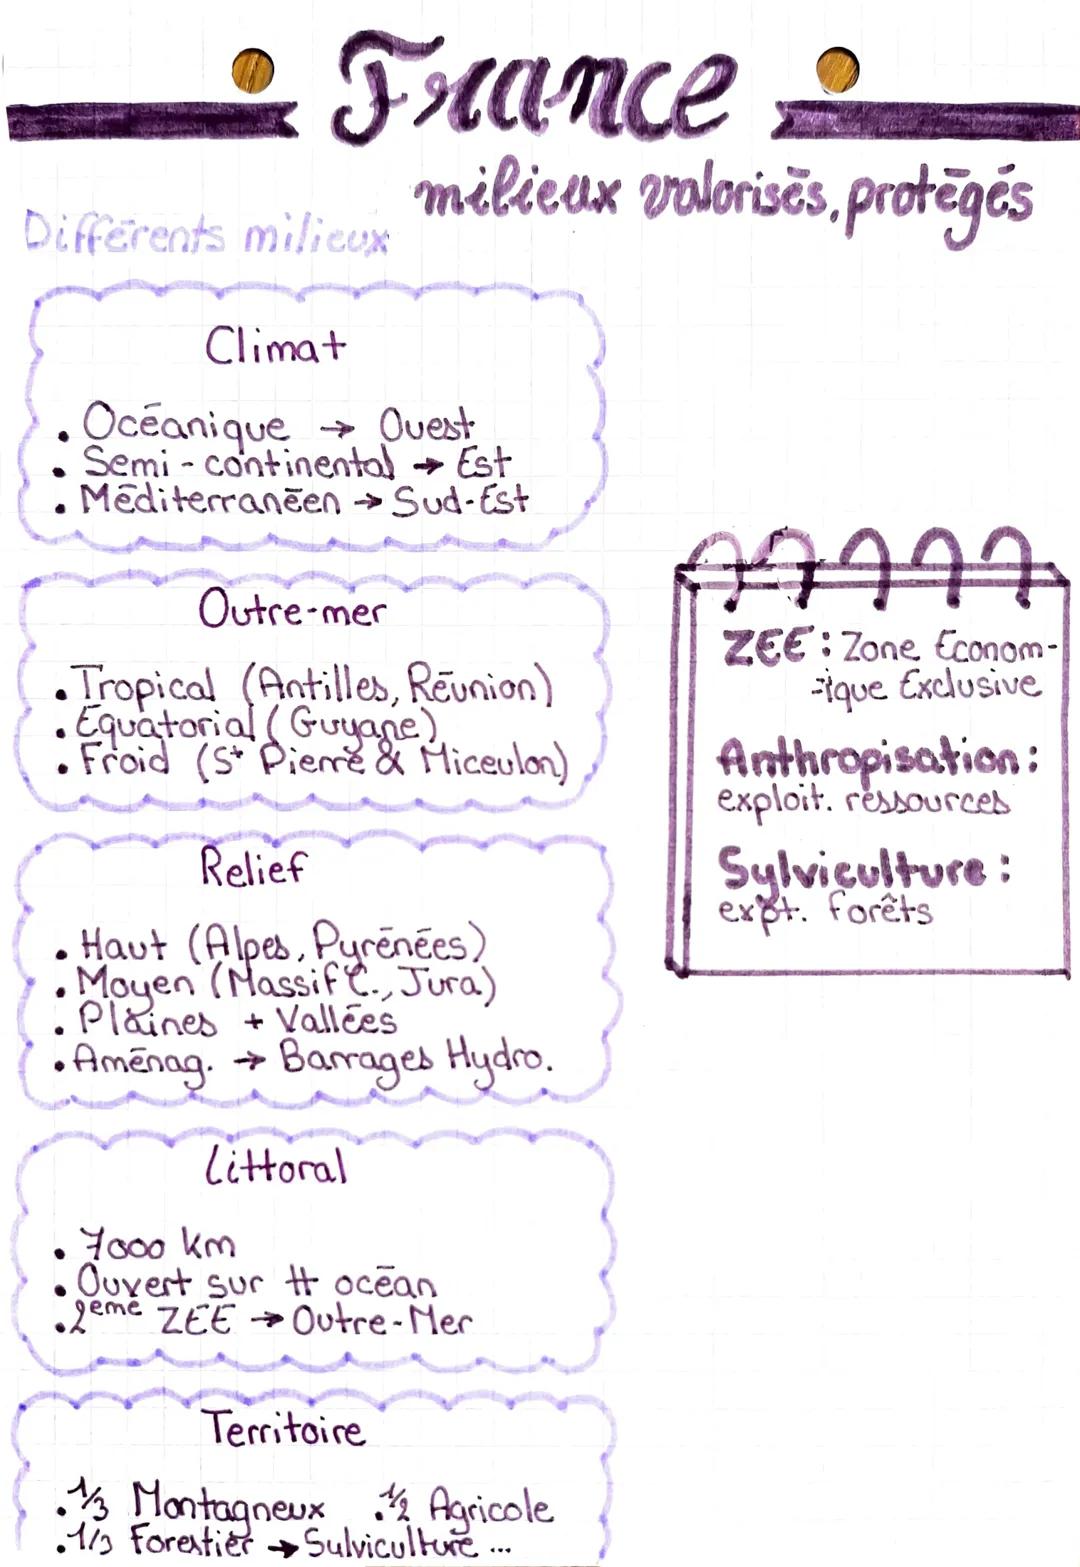 France
milieux valorisés, protégés
Différents milieux
Climat
• Océanique → Ouest
• Semi-continental → Est
• Méditerranéen → Sud-Est
Outre-mer
• Tropical (Antilles, Réunion)
• Équatorial (Guyane)
• Froid (St Pierre & Miceulon)
Relief
• Haut (Alpes, Pyrénées)
• Moyen (Massif C., Jura)
• Plaines + Vallées
• Aménag. → Barrages Hydro.
Littoral
• 7000 km
• Ouvert sur tt océan
• 2eme ZEE → Outre-Mer
Territoire
• 1/3 Montagneux • 1/2 Agricole
• 1/3 Forestier → Sulviculture ...
ZEE : Zone Econom-
-ique Exclusive
Anthropisation :
exploit. ressources
Sylviculture :
expt. forêts